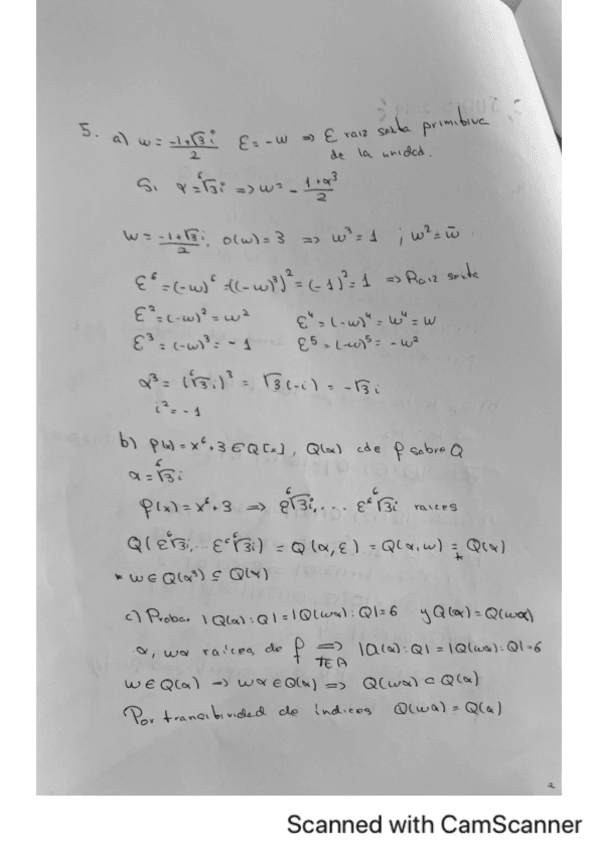 5. a) w = (-1+√3 i)/2   ε = -w ⇒ ε raiz sexta primitiva
de la unidad.
Si α = ⁶√3 i ⇒ w = - (1+α³)/2
w = (-1+√3 i)/2, o(w) = 3 ⇒ w³ = 1 ; w² = w̄
ε⁶ = (-w)⁶ = ((-w)³)² = (-1)² = 1 ⇒ Raiz sexta
ε² = (-w)² = w²   ε⁴ = (-w)⁴ = w⁴ = w
ε³ = (-w)³ = -1   ε⁵ = (-w)⁵ = -w²
α³ = (⁶√3 i)³ = √3 (-i) = -√3 i
i² = -1
b) p(x) = x⁶+3 ∈ Q[x], Q(α) cde p sobre Q
α = ⁶√3 i
p(x) = x⁶+3 ⇒ ε⁶√3 i, ... ε⁶ ⁶√3 i raices
Q(ε⁶√3 i, ... ε⁶ ⁶√3 i) = Q(α, ε) = Q(α, w) =* Q(α)
* w ∈ Q(α³) ⊆ Q(α)
c) Probar |Q(α):Q| = |Q(wα):Q| = 6 y Q(α) = Q(wα)
α, wα raices de p ⇒ TEA |Q(α):Q| = |Q(wα):Q| = 6
w ∈ Q(α) → wα ∈ Q(α) ⇒ Q(wα) ⊂ Q(α)
Por transitividad de índices Q(wα) = Q(α)
2
Scanned with CamScanner